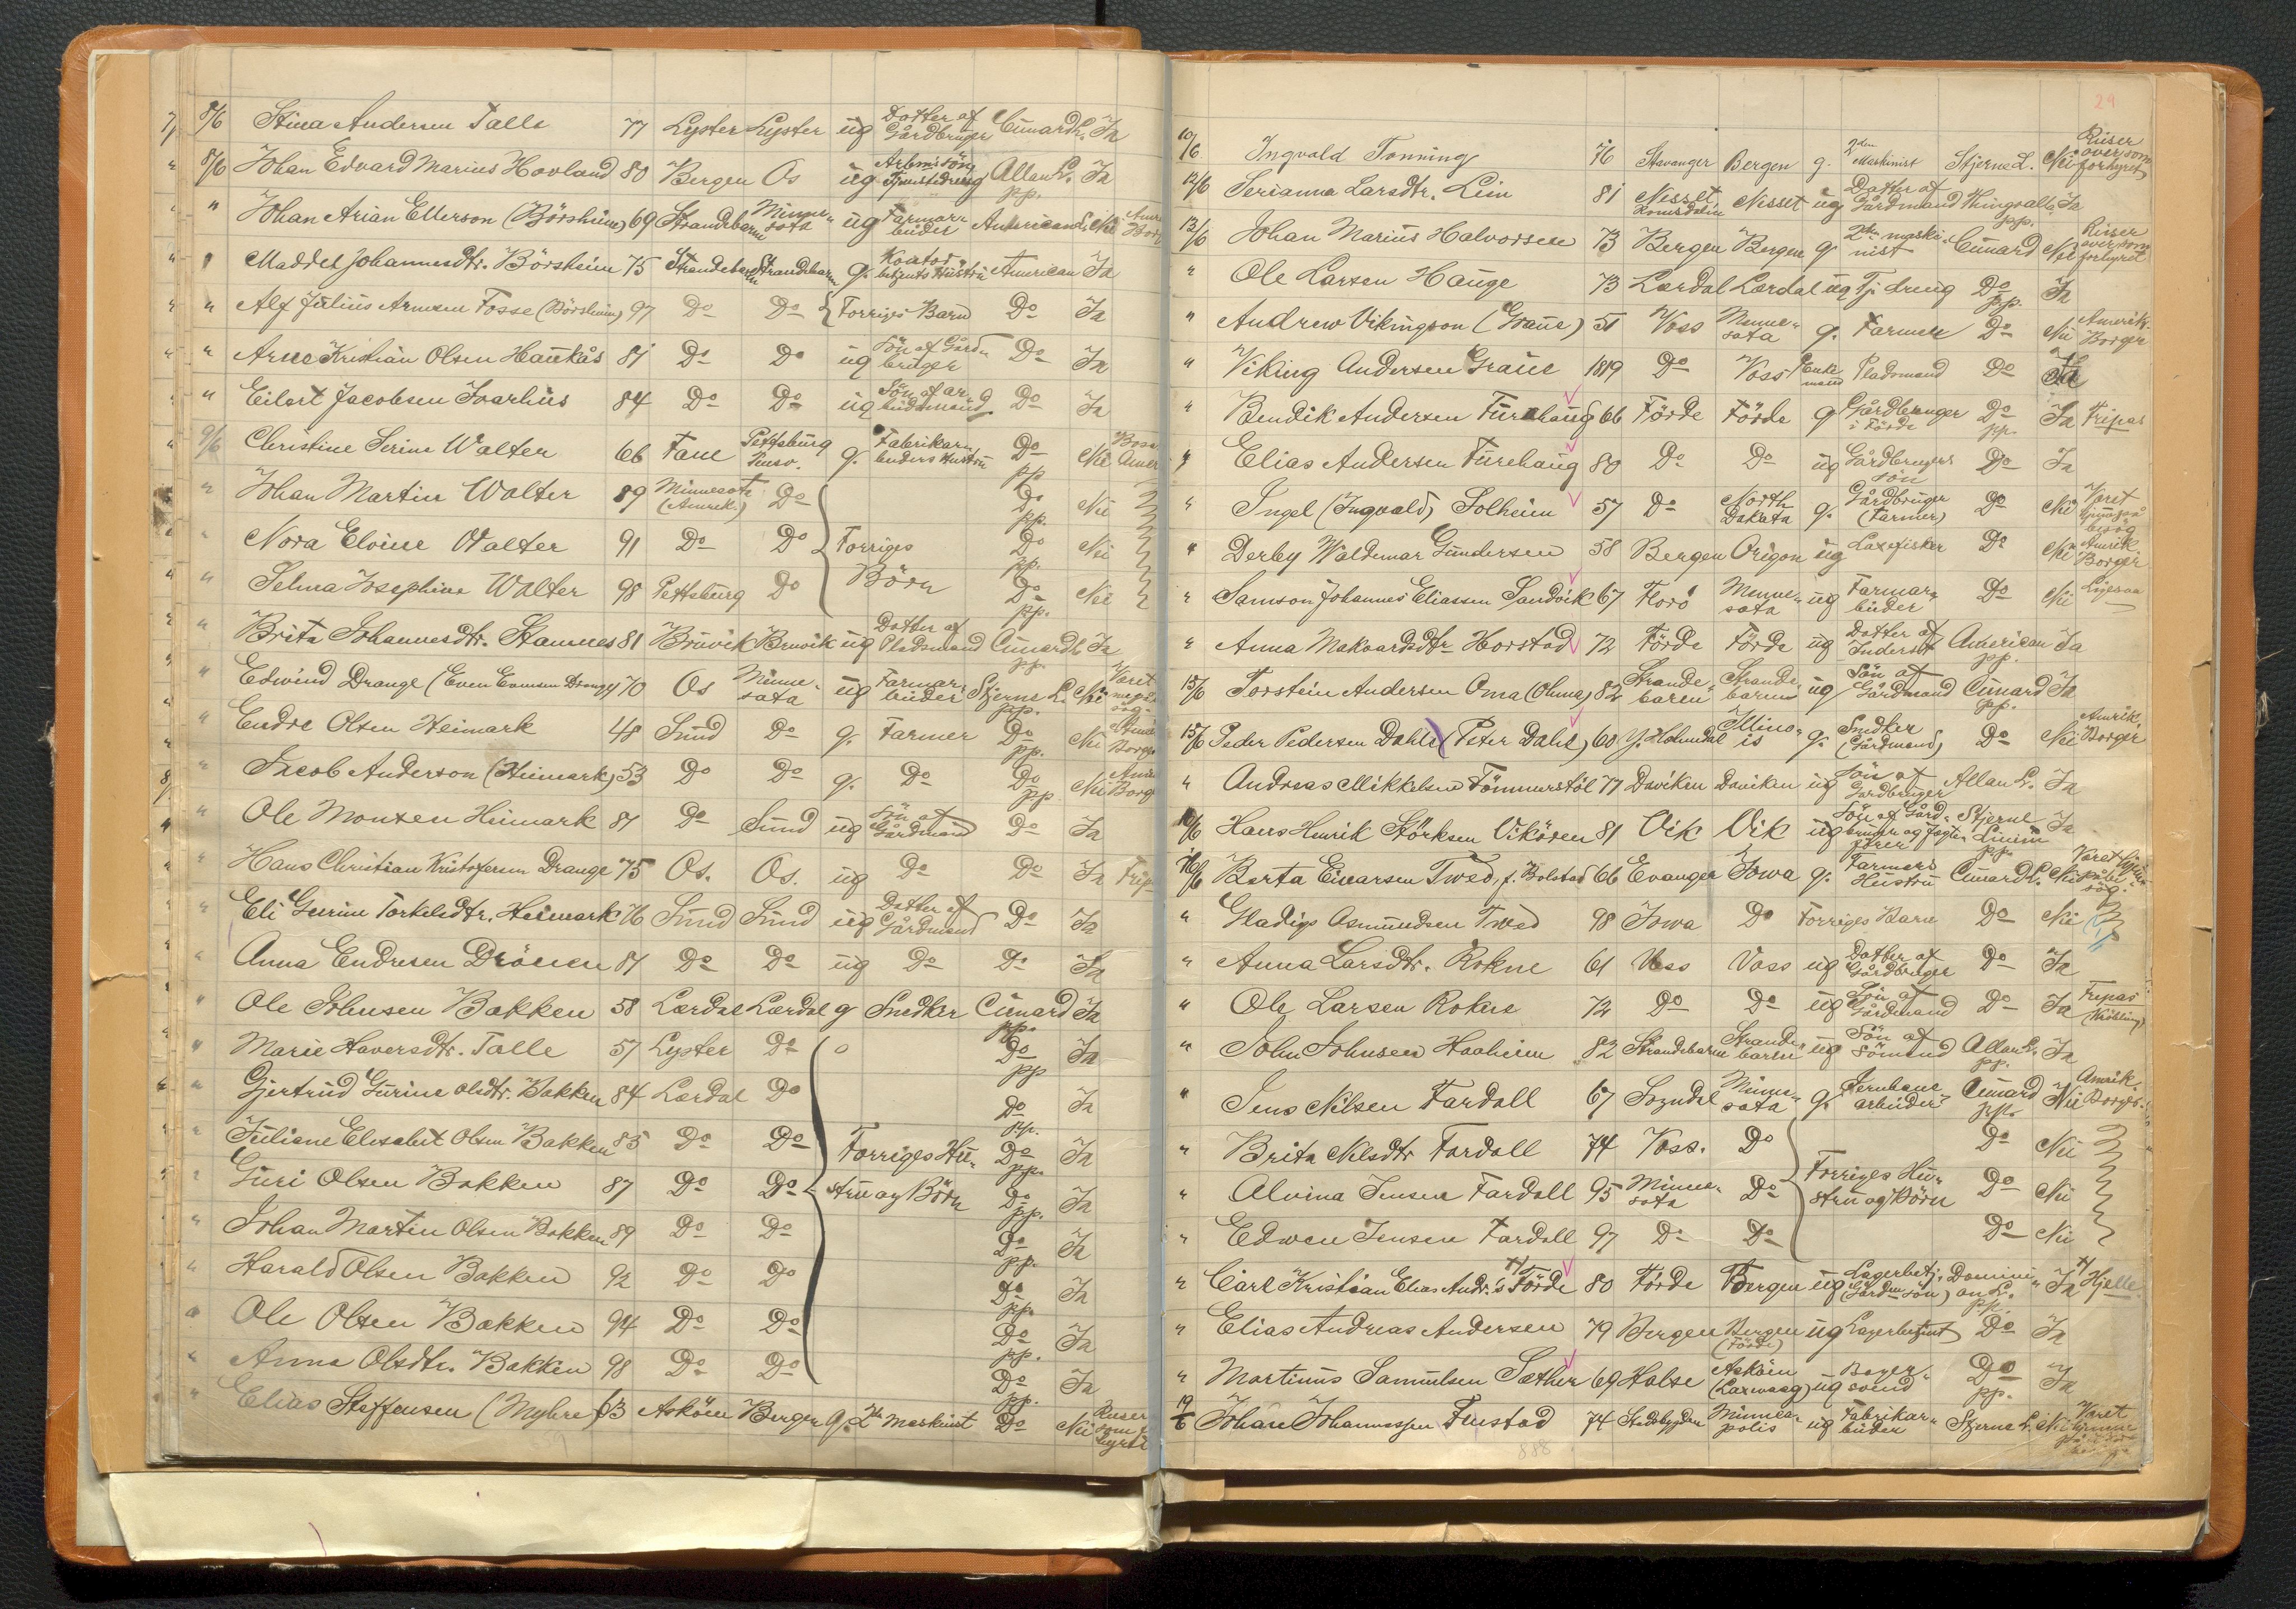 8/6 Stina Andersen Talle 77 Lyster Lyster ug Datter af Gårdbruger Cunard L. Ja
8/6 Johan Edvard Marius Hovland 80 Bergen Os ug Tjenestedreng Allan L. pp. Ja
" Johan Arian Ellerson (Börsheim) 69 Strandebarm Minne-sota ug Farmar-beider American L. Nei
" Maddel Johannesdtr. Börsheim 75 Strandebarm Strandebarm g. Kontor-betjents Hustru American Ja
" Alf Julius Arnesen Fosse (Börsheim) 97 Do Do Forriges Barn Do Ja
" Arne Kristian Olsen Haukås 81 Do Do ug Sön af Gård-bruger Do Ja
" Eilert Jacobsen Ivarhus 84 Do Do ug Sön af ar-beidsmand Do Ja
9/6 Christine Serine Walter 66 Fane Pettsburg g. Fabrikar-beiders Hustru Do pp. Nei
" Johan Martin Walter 89 Minnesota (Amerik.) Do Do pp. Nei
" Nora Elvine Walter 91 Do Do Forriges Do pp. Nei
" Selma Josephine Walter 98 Pettsburg Do Börn Do pp. Nei
" Brita Johannesdtr. Stamnes 81 Bruvik Bruvik ug Datter af Pladsmand Cunard L. pp. Ja
" Edwind Drange (Even Evensen Drange) 70 Os Minne-sota ug Farmar-beider Stjerne L. pp. Nei
" Endre Olsen Heimark 48 Sund Do g. Farmer Do pp. Nei
" Jacob Anderson (Heimark) 53 Do Do g. Do Do pp Nei
" Ole Monsen Heimark 81 Do Sund ug Sön af Gårdmand Do Ja
" Hans Christian Kristofersen Drange 75 Os. Os. ug Do Do Ja
" Eli Gurine Torkelsdtr. Heimark 76 Sund Sund ug Datter af Gårdmand Do Ja
" Anna Endresen Drönen 81 Do Do ug Do Do Ja
" Ole Johnsen Bakken 58 Lærdal Lærdal g Snedker Cunard pp. Ja
" Marie Haversdtr. Talle 57 Lyster Do Do pp Ja
" Gjertrud Gurine Olsdtr. Bakken 84 Lærdal Do Do pp. Ja
" Juliane Elisabet Olsen Bakken 85 Do Do Forriges Hu- Do pp. Ja
" Guri Olsen Bakken 87 Do Do stru og Börn Do pp. Ja
" Johan Martin Olsen Bakken 89 Do Do Do pp. Ja
" Harald Olsen Bakken 92 Do Do Do pp. Ja
" Ole Olsen Bakken 94 Do Do Do pp. Ja
" Anna Olsdtr. Bakken 98 Do Do Do pp. Ja
" Elias Steffensen (Myhre) 73 Asköen Bergen g. 2den Maskinist Do Nei
29
10/6 Ingvald Tonning 76 Stavanger Bergen g. 2den Maskinist Stjerne L. Nei Reiser over som forhyret
12/6 Serianna Larsdtr. Lein 81 Nesset Romsdalen Nesset ug Datter af Gårdmand Thingvalla pp. Ja
12/6 Johan Marius Halvorsen 73 Bergen Bergen g. 2den maski-nist Cunard Nei Reiser over som forhyret
" Ole Larsen Hauge 73 Lærdal Lærdal ug Tj. dreng Do pp. Ja
" Andrew Vikingson (Graue) 51 Voss Minne-sota g. Farmer Do Nei Amerik. Borger
" Viking Andersen Graue 1819 Do Voss Enke-mand Pladsmand Do Ja
" Bendik Andersen Furehaug 66 Förde Förde g Gårdbruger i Förde Do pp. Ja Fripas
" Elias Andersen Furehaug 80 Do Do ug Gårdbrugers sön Do Ja
" Ingel (Ingvald) Solheim 57 Do North Dakata g. Gårdbruger (Farmer) Do Nei Været hjemme på besög
" Derby Waldemar Gundersen 58 Bergen Origon ug Laxefisker Do Nei Amerik. Borger
" Samson Johannes Eliassen Sandvik 67 Florö Minne-sota ug Farmar-beider Do Nei Ligesaa
" Anna Makvardsdtr Horstad 72 Förde Förde ug Datter af Inderst American pp. Ja
15/6 Torstein Andersen Oma (Ohma) 82 Strande-barm Strande-barm ug Sön af Gårdmand Cunard pp. Ja
15/6 Peder Pedersen Dahle (Peter Dahl) 60 Y. Holmedal Illino-is g. Snedker (Gårdmand) Do Nei Amerik. Borger
" Andreas Mikkelsen Tömmerstöl 77 Daviken Daviken ug Sön af Gardbruger Allan L. Ja
16/6 Hans Henrik Störksen Vikören 81 Vik Vik ug Sön af Gård-bruger og Jagte-förer Stjerne Linien pp. Ja
16/6 Berta Eivarsen Twed, f. Bolstad 66 Evanger Iowa g. Farmers Hustru Cunard L. Nei Været hjemme på be-sög
" Gladigs Asmundsen Twed 98 Iowa Do Forriges Barn Do Nei
" Anna Larsdtr. Rokne 61 Voss Voss ug Datter af Gårdbruger Do Ja
" Ole Larsen Rokne 72 Do Do ug Sön af Gårdmand Do Ja Fripas (Kröbling)
" John Johnsen Haaheim 82 Strandebarm Strande-barm ug Sön af Sömand Allan L. pp. Ja
" Jens Nilsen Fardall 67 Sogndal Minne-sota g. Jernbane-arbeider Cunard pp. Nei Amerik. Borger
" Brita Nilsdtr Fardall 74 Voss. Do Do Nei
" Alvina Jensen Fardall 95 Minne-sota Do Forriges Hu-stru og Börn Do Nei
" Edwen Jensen Fardall 97 Do Do Do Nei
" Carl Kristian Elias Andr. Förde 80 Förde Bergen ug Lagerbetj. (Gårdm. sön) Domini-on L. pp. Ja Hjelle
" Elias Andreas Andersen 79 Bergen Bergen (Förde) ug Lagerbetjent Do Ja
" Martinus Samuelsen Sæther 69 Halse Asköen (Laxevaag) ug Bager-svend Do pp. Ja
19/6 Johan Johannessen Fenstad 74 Stadsbygden Minnea-polis ug Fabrikar-beider Stjerne L. Nei Været hjemme
888